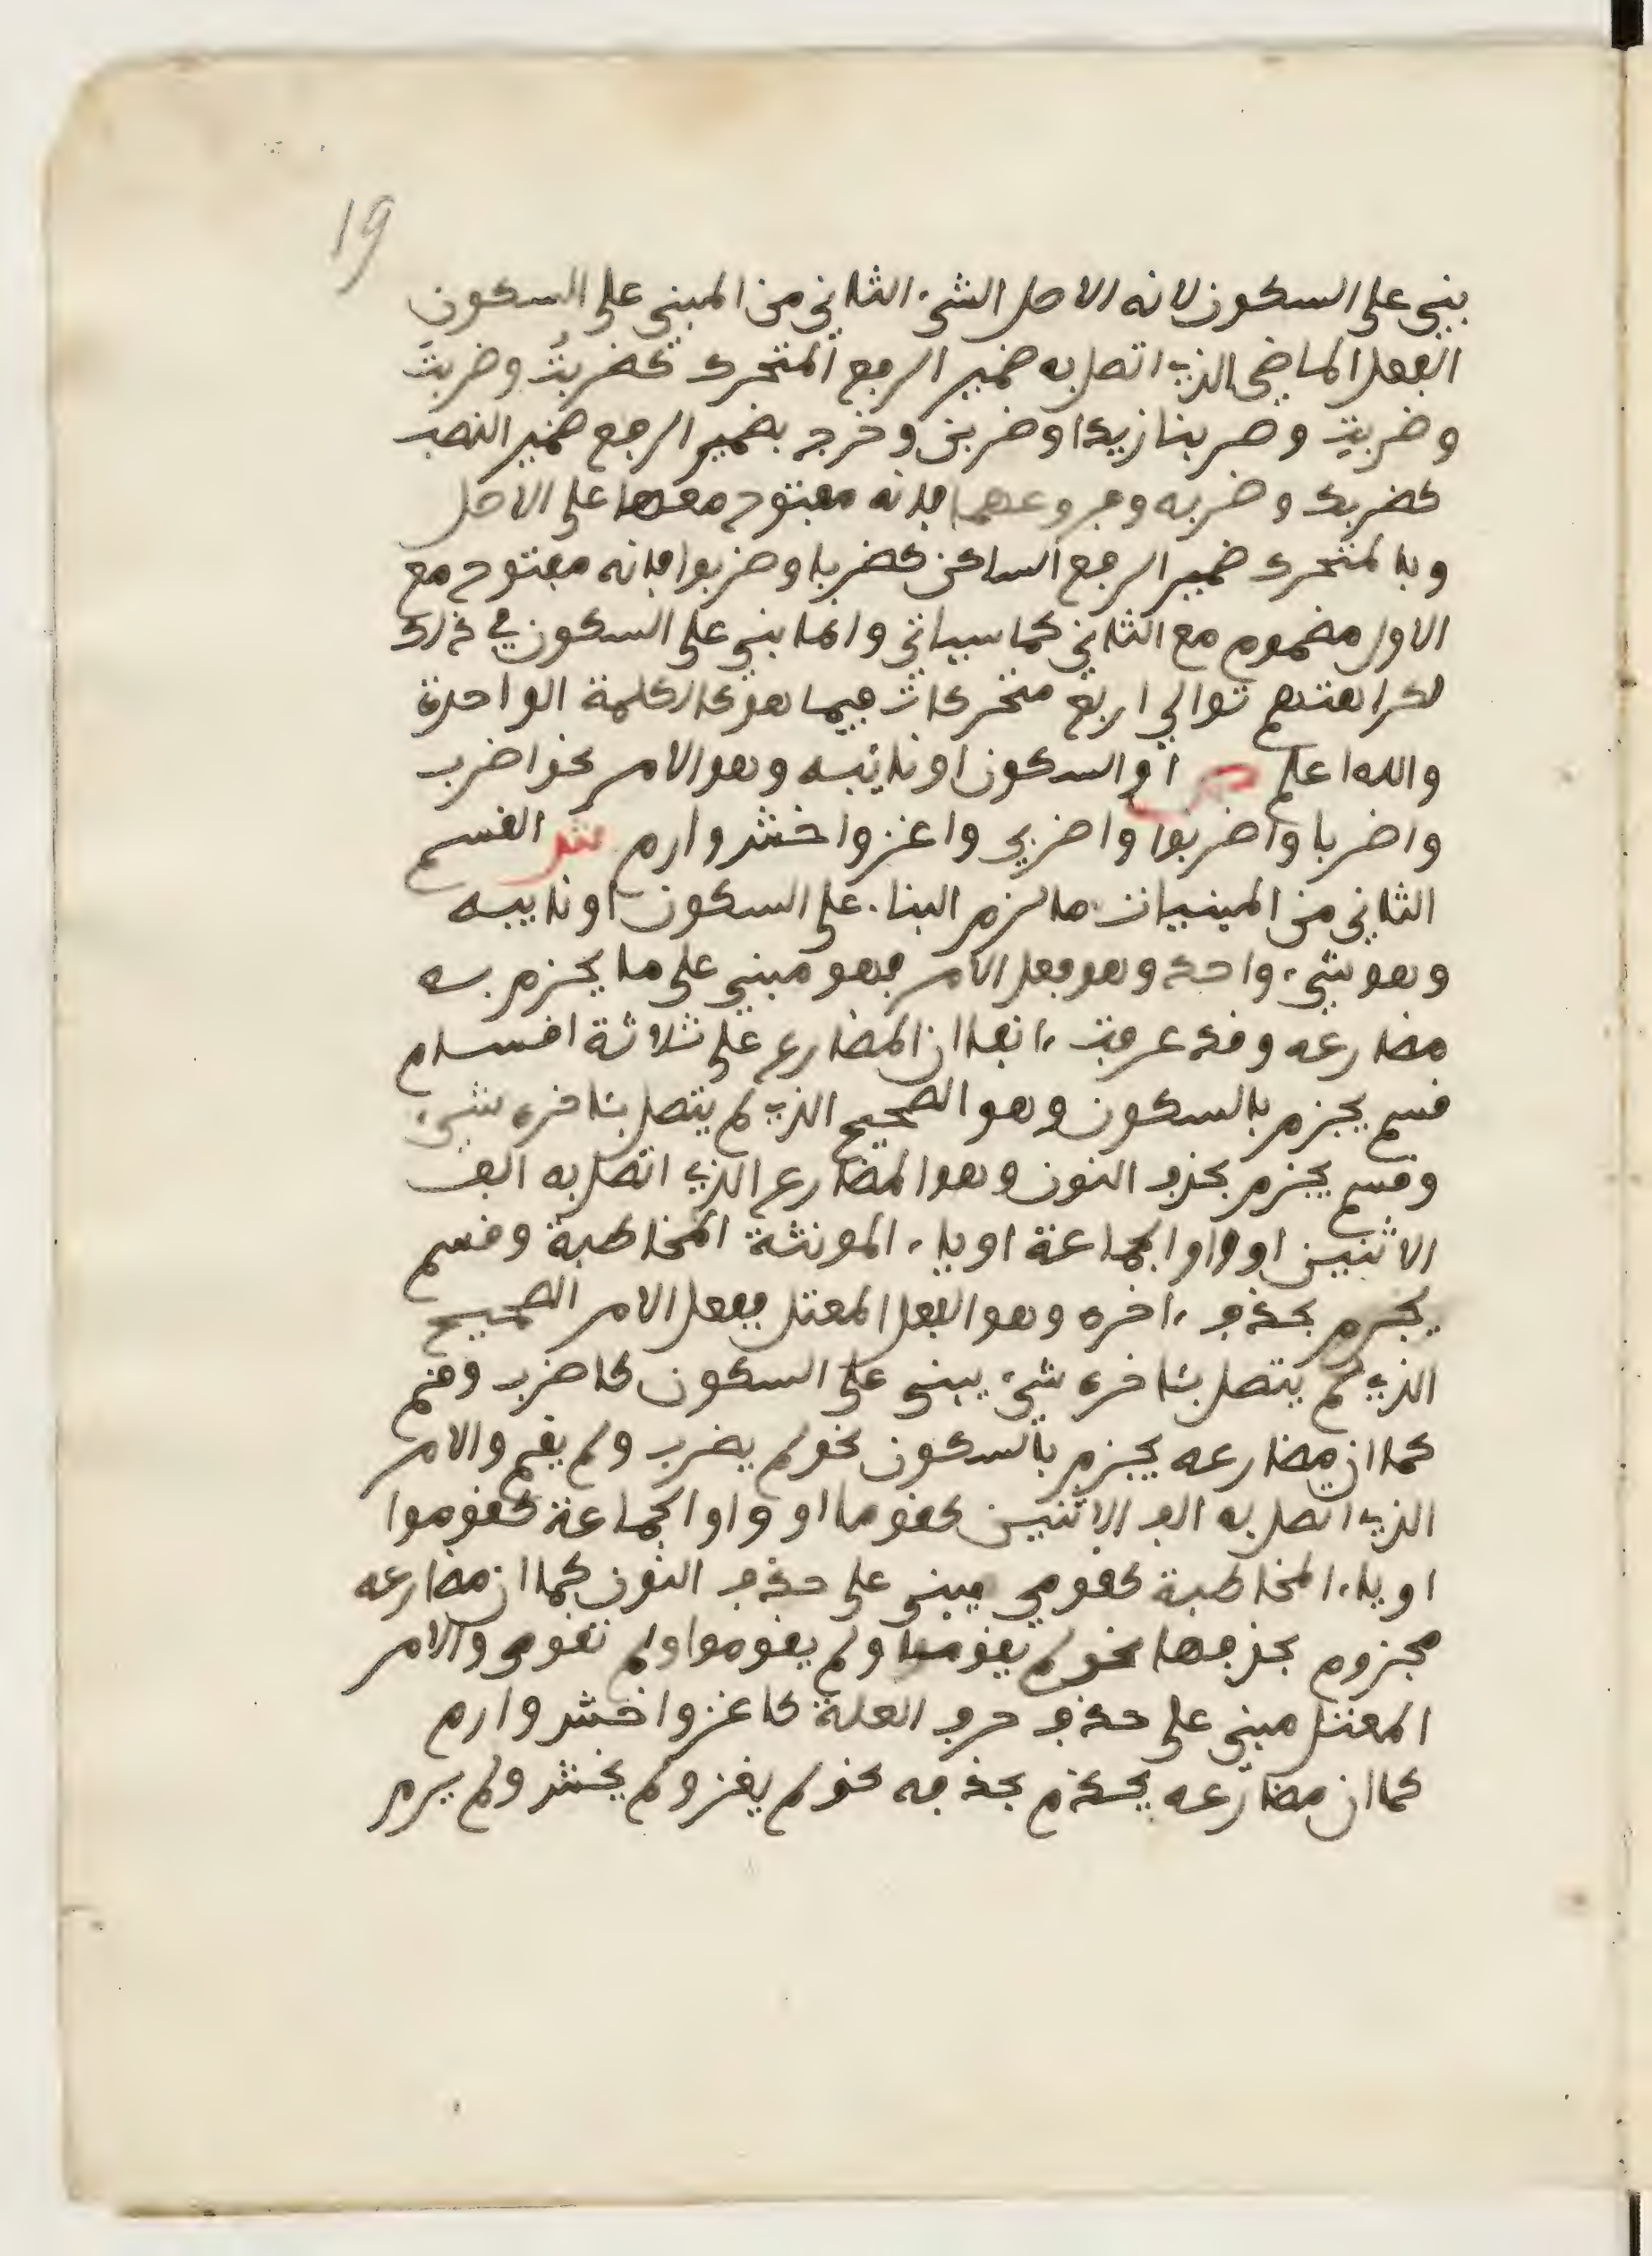 19
بني على السكون لانه الاصل الشيء الثاني من المبني على السكون
الفعل الماضي الذي اتصل به ضمير الرفع المتحرك كضربتُ وضربتَ
وضربتِ وضربنا زيدا وضربن وخرج بضمير الرفع ضمير النصب
كضربك وضربه وفروعهما فانه مفتوح معها على الاصل
وبالمتحرك ضمير الرفع الساكن كضربا وضربوا فانه مفتوح مع
الاول مضموم مع الثاني كما سياتي وانما بني على السكون في ذلك
لكراهتهم توالي اربع متحركات فيما هو كالكلمة الواحدة
والله اعلم ص او السكون او نائبه وهو الامر نحو اضرب
واضربا واضربوا واضربي واغز واخش وارم ش القسم
الثاني من المبنيات ما لزم البناء على السكون او نايبه
وهو شيء واحد وهو فعل الامر فهو مبني على ما يجزم به
مضارعه وقد عرفت ءانفا ان المضارع على ثلاثة اقسام
قسم يجزم بالسكون وهو الصحيح الذي لم يتصل بئاخره شيء
وقسم يجزم بحذف النون وهو المضارع الذي اتصل به الف
الاثنين او واو الجماعة او ياء المونثة المخاطبة وقسم
يجزم بحذف ءاخره وهو الفعل المعتل ففعل الامر الصحيح
الذي لم يتصل بئاخره شيء يبنى على السكون كاضرب وقم
كما ان مضارعه يجزم بالسكون نحو لم يضرب ولم يقم والامر
الذي اتصل به الف الاثنين كقوما او واو الجماعة كقوموا
او ياء المخاطبة كقومي مبني على حذف النون كما ان مضارعه
مجزوم بحذفها نحو لم يقوما ولم يقوموا ولم تقومي والامر
المعتل مبني على حذف حرف العلة كاغز واخش وارم
كما ان مضارعه يحذم بحذفه نحو لم يغز ولم يخش ولم يرم